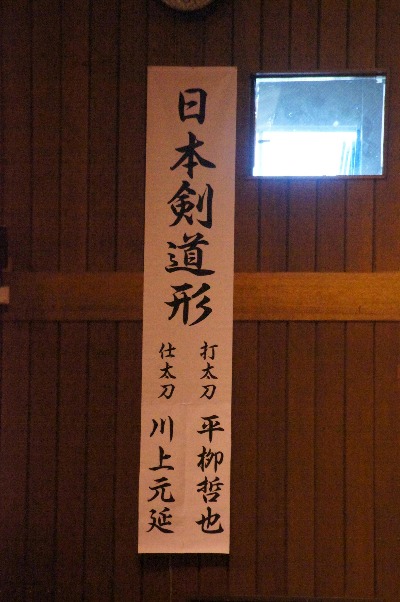 日本剣道形
打太刀 平柳哲也
仕太刀 川上元延